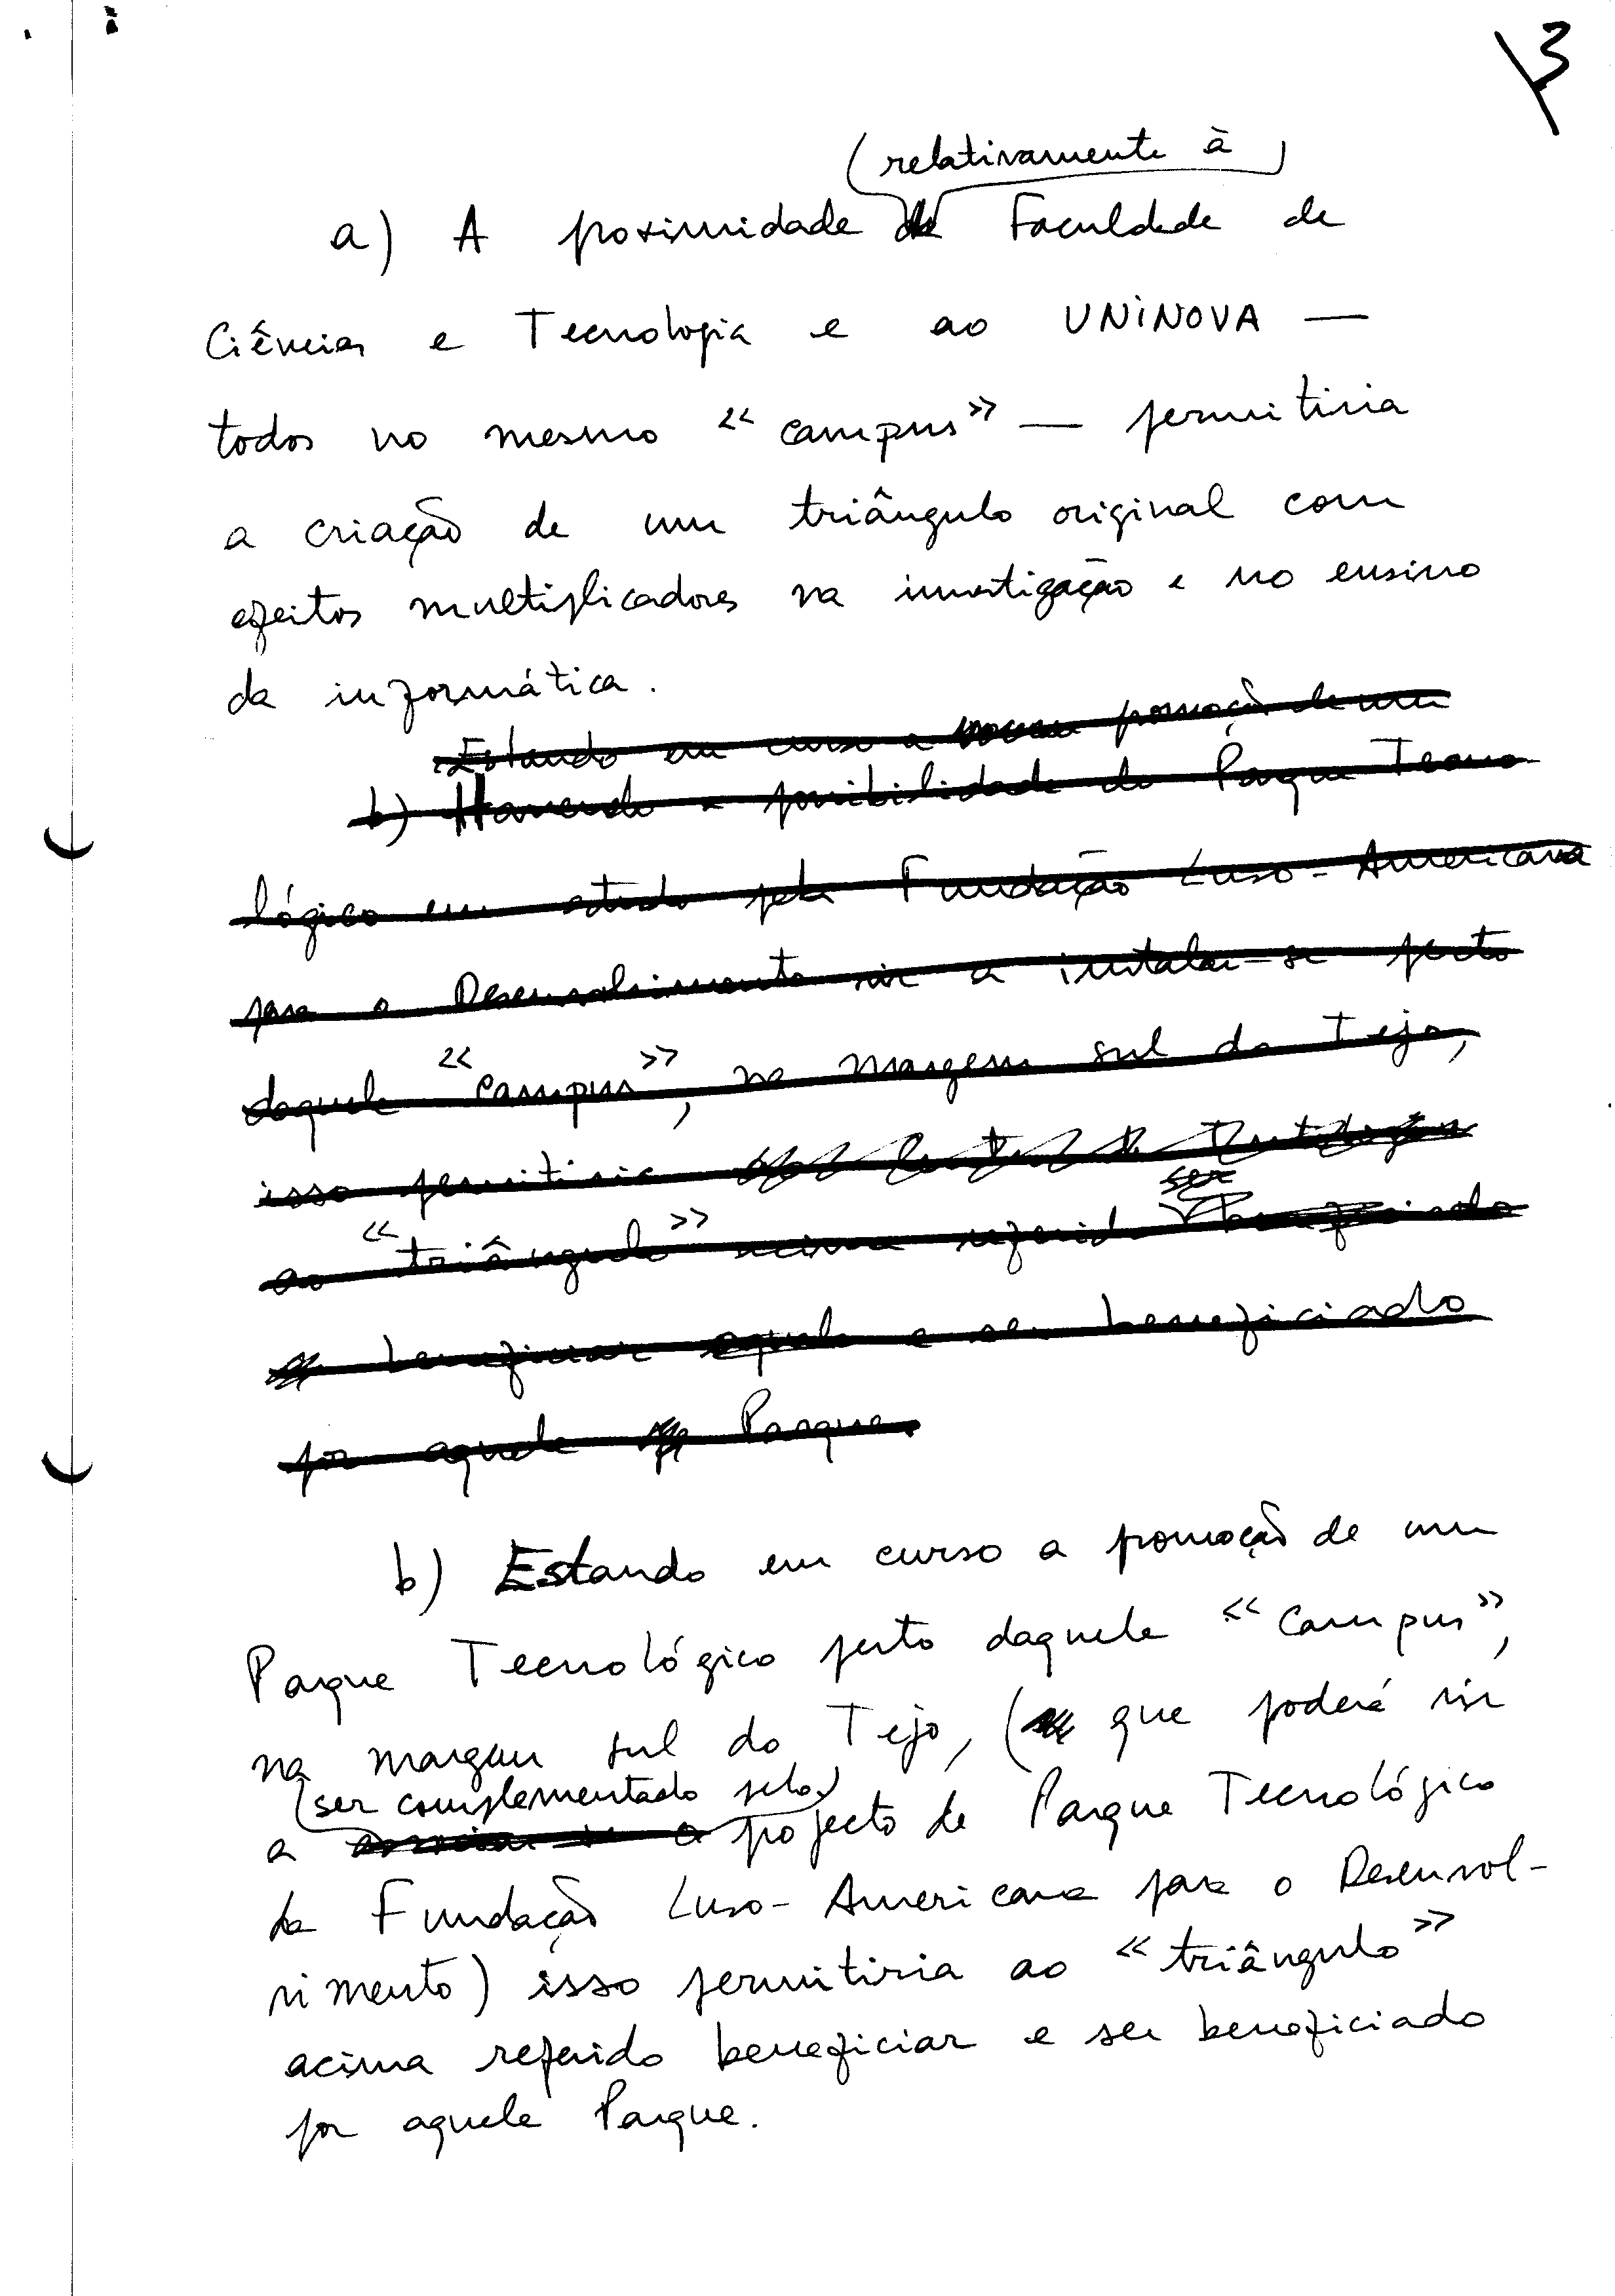 3
(relativamente à)
a) A proximidade da Faculdade de
Ciências e Tecnologia e ao UNINOVA —
todos no mesmo "campus" — permitiria
a criação de um triângulo original com
efeitos multiplicadores na investigação e no ensino
da informática.
Estando em curso a promoção de um
b) Havendo a possibilidade do Parque Tecno
lógico em estudo pela Fundação Luso-Americana
para o Desenvolvimento vir a instalar-se perto
daquele "campus", na margem sul do Tejo,
isso permitiria
ser
ao "triângulo" acima referido beneficiado
beneficiar aquele e ser beneficiado
por aquele Parque.
b) Estando em curso a promoção de um
Parque Tecnológico perto daquele "campus",
na margem sul do Tejo, (que poderá vir
(ser complementado pelo)
a projecto de Parque Tecnológico
da Fundação Luso-Americana para o Desenvol-
vimento) isso permitiria ao "triângulo"
acima referido beneficiar e ser beneficiado
por aquele Parque.